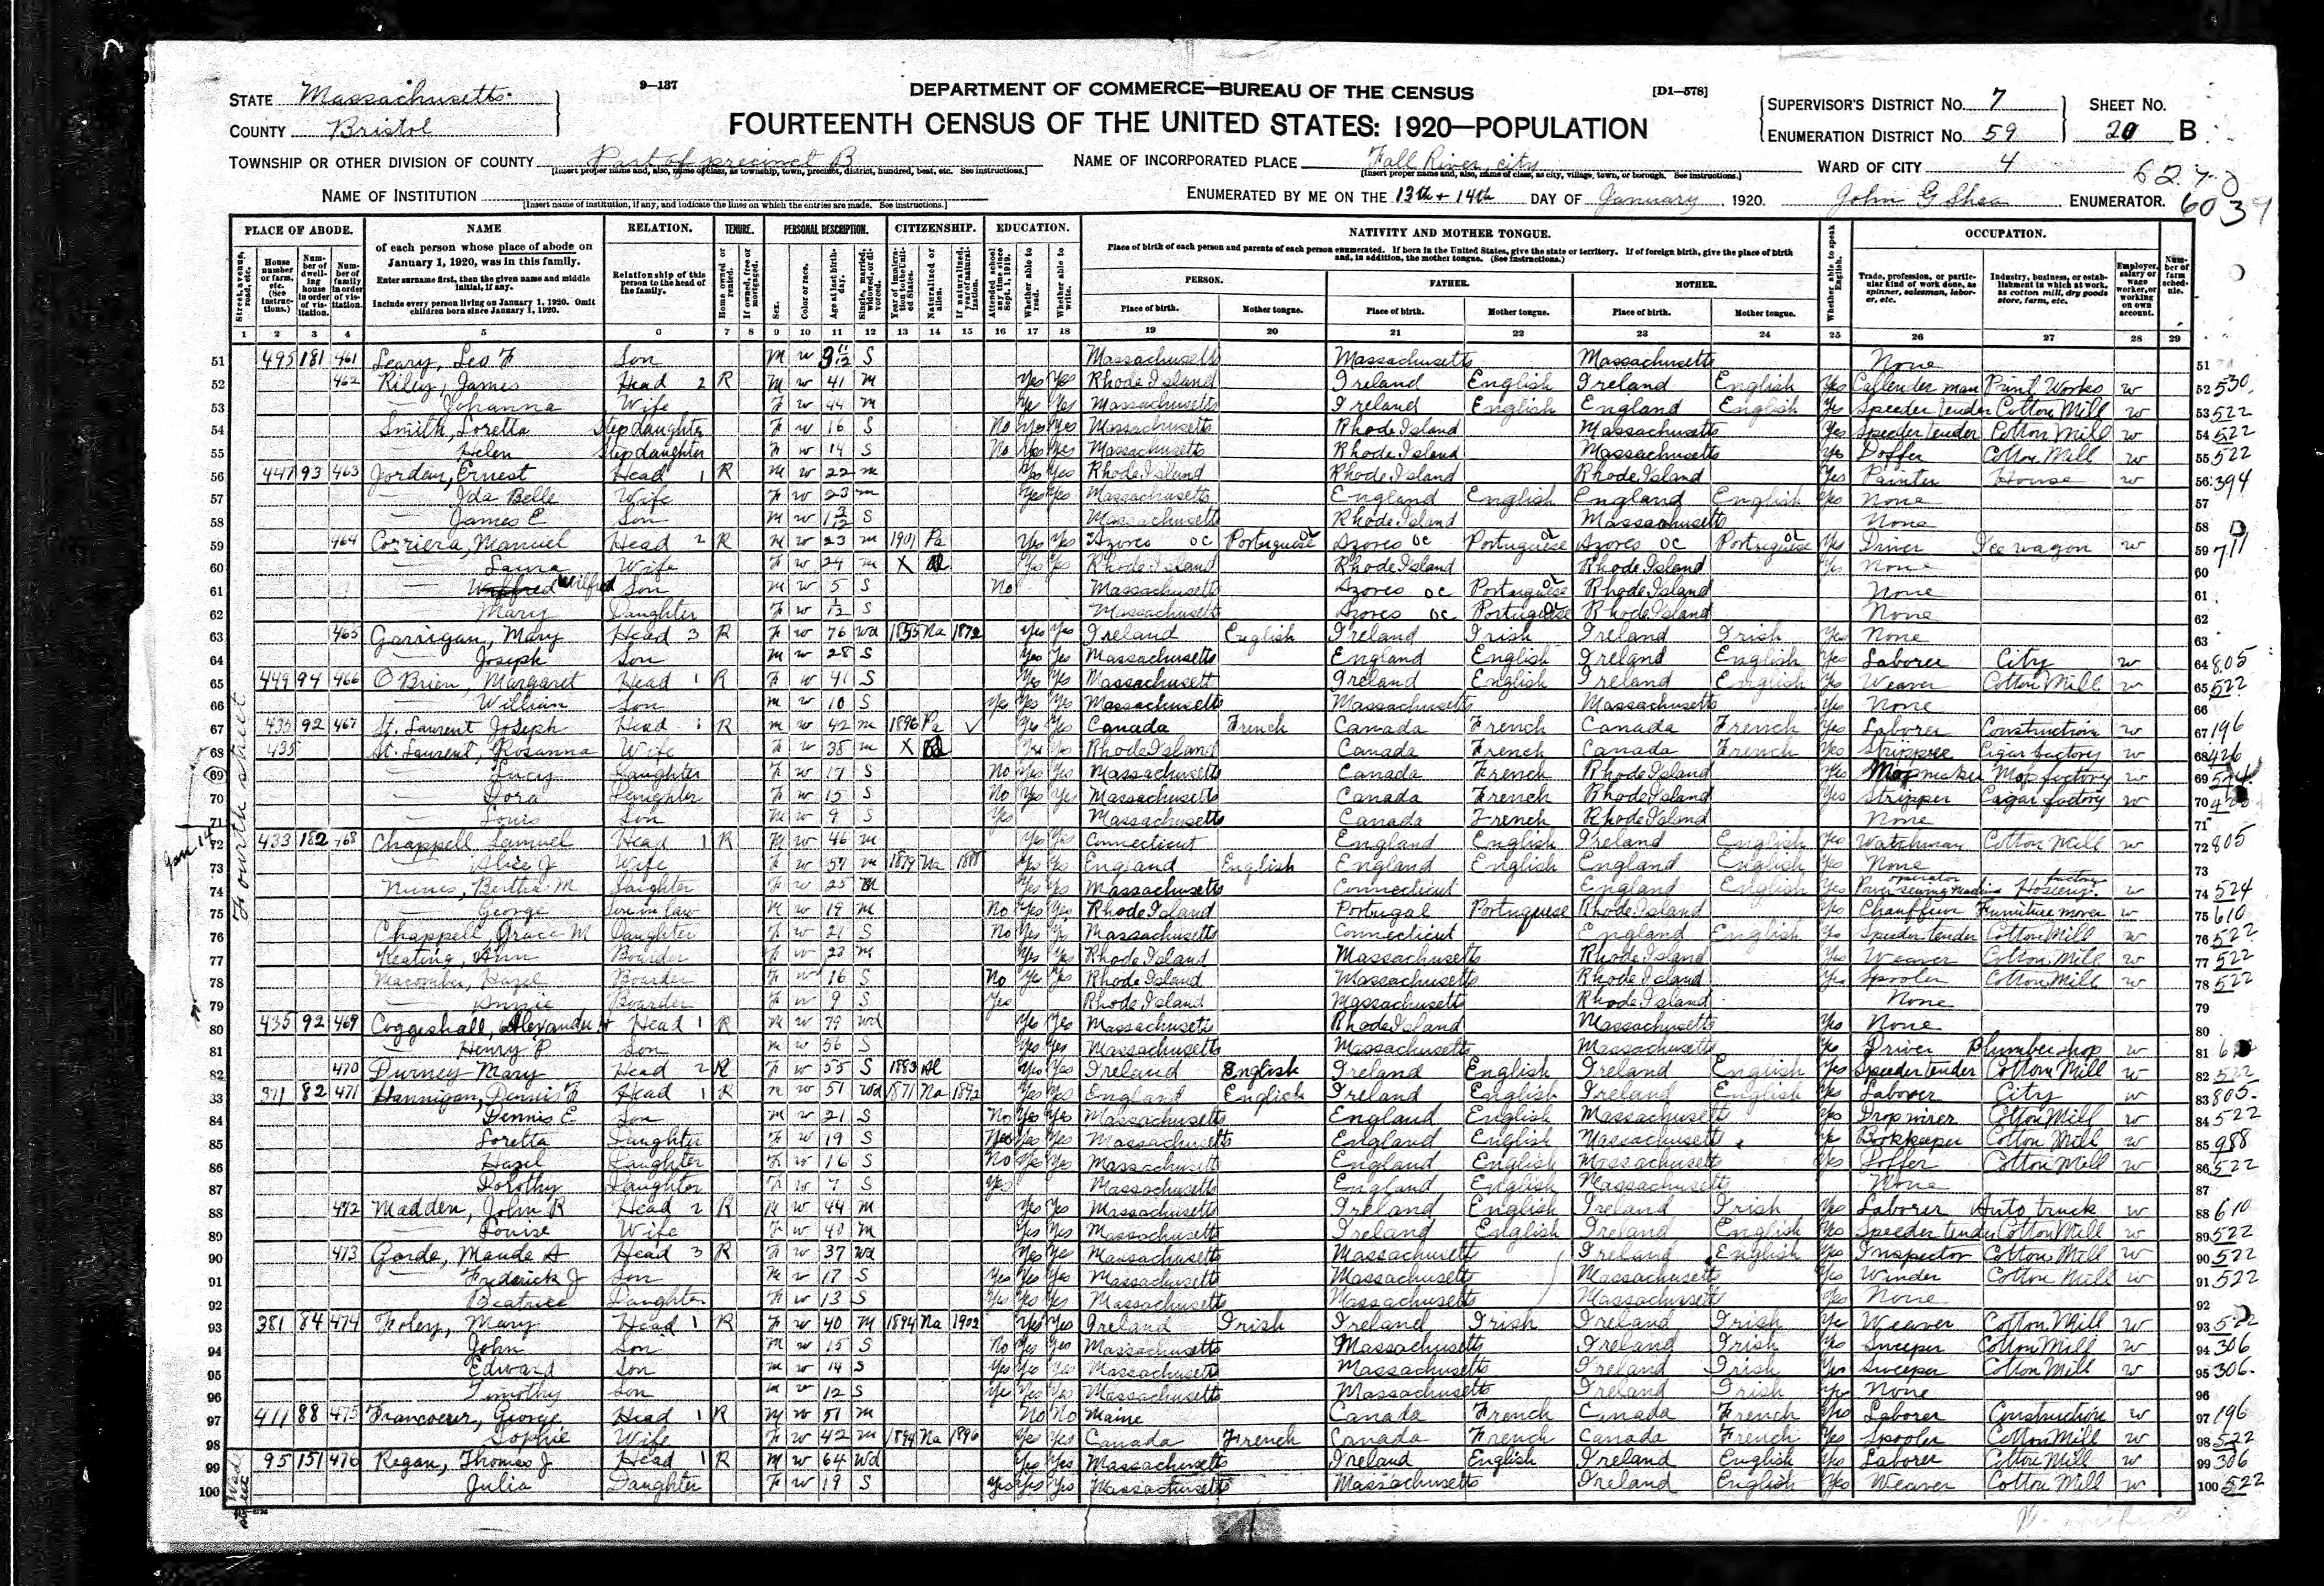 9—137
DEPARTMENT OF COMMERCE—BUREAU OF THE CENSUS
[D1—578]
STATE Massachusetts
COUNTY Bristol
FOURTEENTH CENSUS OF THE UNITED STATES: 1920—POPULATION
SUPERVISOR'S DISTRICT NO. 7
ENUMERATION DISTRICT NO. 59
SHEET NO. 20 B
TOWNSHIP OR OTHER DIVISION OF COUNTY Part of precinct B
[Insert proper name and, also, name of class, as township, town, precinct, district, hundred, beat, etc. See instructions.]
NAME OF INCORPORATED PLACE Fall River, city
[Insert proper name and, also, name of class, as city, village, town, or borough. See instructions.]
WARD OF CITY 4
NAME OF INSTITUTION
[Insert name of institution, if any, and indicate the lines on which the entries are made. See instructions.]
ENUMERATED BY ME ON THE 13th + 14th DAY OF January, 1920. John G Shea ENUMERATOR.
PLACE OF ABODE. NAME RELATION. TENURE. PERSONAL DESCRIPTION. CITIZENSHIP. EDUCATION. NATIVITY AND MOTHER TONGUE. OCCUPATION.
of each person whose place of abode on January 1, 1920, was in this family.
Enter surname first, then the given name and middle initial, if any.
Include every person living on January 1, 1920. Omit children born since January 1, 1920.
Relationship of this person to the head of the family.
Place of birth of each person and parents of each person enumerated. If born in the United States, give the state or territory. If of foreign birth, give the place of birth and, in addition, the mother tongue. (See instructions.)
PERSON. FATHER. MOTHER.
Place of birth. Mother tongue. Place of birth. Mother tongue. Place of birth. Mother tongue.
Trade, profession, or particular kind of work done, as spinner, salesman, laborer, etc.
Industry, business, or establishment in which at work, as cotton mill, dry goods store, farm, etc.
Employer, salary or wage worker, or working on own account.
1 2 3 4 5 6 7 8 9 10 11 12 13 14 15 16 17 18 19 20 21 22 23 24 25 26 27 28 29
51 495 181 461 Leary, Leo F Son M w 3 11/12 S Massachusetts Massachusetts Massachusetts None 51
52 462 Riley, James Head 2 R M w 41 M Yes Yes Rhode Island Ireland English Ireland English Yes Callender man Print Works w 52 530
53 Johanna Wife F w 44 M Yes Yes Massachusetts Ireland English England English Yes Speeder tender Cotton Mill w 53 522
54 Smith, Loretta Stepdaughter F w 16 S No Yes Yes Massachusetts Rhode Island Massachusetts Yes Speeder tender Cotton Mill w 54 522
55 Helen Stepdaughter F w 14 S No Yes Yes Massachusetts Rhode Island Massachusetts Yes Doffer Cotton Mill w 55 522
56 447 93 463 Jordan, Ernest Head 1 R M w 22 M Yes Yes Rhode Island Rhode Island Rhode Island Yes Painter House w 56 394
57 Ida Belle Wife F w 23 M Yes Yes Massachusetts England English England English Yes None 57
58 James E Son M w 1 3/12 S Massachusetts Rhode Island Massachusetts None 58
59 464 Corriera, Manuel Head 2 R M w 23 M 1901 Pa Yes Yes Azores oc Portuguese Azores oc Portuguese Azores oc Portuguese Yes Driver Ice wagon w 59 711
60 Laura Wife F w 24 M X Yes Yes Rhode Island Rhode Island Rhode Island Yes None 60
61 Wilfred Son M w 5 S No Massachusetts Azores oc Portuguese Rhode Island None 61
62 Mary Daughter F w 1/12 S Massachusetts Azores oc Portuguese Rhode Island None 62
63 465 Garrigan, Mary Head 3 R F w 76 Wd 1855 Na 1872 Yes Yes Ireland English Ireland Irish Ireland Irish Yes None 63
64 Joseph Son M w 28 S Yes Yes Massachusetts England English Ireland English Yes Laborer City w 64 805
65 449 94 466 O Brien, Margaret Head 1 R F w 41 S Yes Yes Massachusetts Ireland English Ireland English Yes Weaver Cotton Mill w 65 522
66 William Son M w 10 S Yes Yes Yes Massachusetts Massachusetts Massachusetts Yes None 66
67 435 92 467 St. Laurent Joseph Head 1 R M w 42 M 1896 Pa Yes Yes Canada French Canada French Canada French Yes Laborer Construction w 67 196
68 435 St. Laurent, Rosanna Wife F w 38 M X Yes Yes Rhode Island Canada French Canada French Yes Stripper Cigar factory w 68 426
69 Lucy Daughter F w 17 S No Yes Yes Massachusetts Canada French Rhode Island Yes Mopmaker Mop factory w 69
70 Dora Daughter F w 15 S No Yes Yes Massachusetts Canada French Rhode Island Yes Stripper Cigar factory w 70
71 Louis Son M w 9 S Yes Massachusetts Canada French Rhode Island None 71
72 433 182 468 Chappell, Samuel Head 1 R M w 46 M Yes Yes Connecticut England English Ireland English Yes Watchman Cotton Mill w 72 805
73 Alice J Wife F w 57 M 1879 Na 1888 Yes Yes England English England English England English Yes None 73
74 Nunes, Bertha M Daughter F w 25 M Yes Yes Massachusetts Connecticut England English Yes Power sewing machine operator Hosiery factory w 74 524
75 George Son in law M w 19 M No Yes Yes Rhode Island Portugal Portuguese Rhode Island Yes Chauffeur Furniture mover w 75 610
76 Chappell, Grace M Daughter F w 21 S No Yes Yes Massachusetts Connecticut England English Yes Speeder tender Cotton Mill w 76 522
77 Keating, Ann Boarder F w 23 M Yes Yes Rhode Island Massachusetts Rhode Island Yes Weaver Cotton Mill w 77 522
78 Macomber, Hazel Boarder F w 16 S No Yes Yes Rhode Island Massachusetts Rhode Island Yes Spooler Cotton Mill w 78 522
79 Annie Boarder F w 9 S Yes Rhode Island Massachusetts Rhode Island None 79
80 435 92 469 Coggeshall, Alexander H Head 1 R M w 79 Wd Yes Yes Massachusetts Rhode Island Massachusetts Yes None 80
81 Henry P Son M w 56 S Yes Yes Massachusetts Massachusetts Massachusetts Yes Driver Plumber shop w 81
82 470 Durney Mary Head 2 R F w 55 S 1883 Al Yes Yes Ireland English Ireland English Ireland English Yes Speeder tender Cotton Mill w 82 522
83 371 82 471 Hannigan, Dennis F Head 1 R M w 51 Wd 1871 Na 1892 Yes Yes England English Ireland English Ireland English Yes Laborer City w 83 805
84 Dennis E Son M w 21 S No Yes Yes Massachusetts England English Massachusetts Yes Drop wirer Cotton Mill w 84 522
85 Loretta Daughter F w 19 S Yes Yes Massachusetts England English Massachusetts Yes Bookkeeper Cotton Mill w 85 988
86 Hazel Daughter F w 16 S No Yes Yes Massachusetts England English Massachusetts Yes Doffer Cotton Mill w 86 522
87 Dorothy Daughter F w 7 S Yes Massachusetts England English Massachusetts None 87
88 472 Madden, John R Head 2 R M w 44 M Yes Yes Massachusetts Ireland English Ireland Irish Yes Laborer Auto truck w 88 610
89 Louise Wife F w 40 M Yes Yes Massachusetts Ireland English Ireland English Yes Speeder tender Cotton Mill w 89 522
90 473 Gorde, Maude A Head 3 R F w 37 Wd Yes Yes Massachusetts Massachusetts Ireland English Yes Inspector Cotton Mill w 90 522
91 Frederick J Son M w 17 S Yes Yes Yes Massachusetts Massachusetts Massachusetts Yes Winder Cotton Mill w 91 522
92 Beatrice Daughter F w 13 S Yes Yes Yes Massachusetts Massachusetts Massachusetts Yes None 92
93 381 84 474 Foley, Mary Head 1 R F w 40 M 1894 Na 1902 Yes Yes Ireland Irish Ireland Irish Ireland Irish Yes Weaver Cotton Mill w 93 522
94 John Son M w 15 S No Yes Yes Massachusetts Massachusetts Ireland Irish Yes Sweeper Cotton Mill w 94 306
95 Edward Son M w 14 S Yes Yes Yes Massachusetts Massachusetts Ireland Irish Yes Sweeper Cotton Mill w 95 306
96 Timothy Son M w 12 S Yes Yes Yes Massachusetts Massachusetts Ireland Irish Yes None 96
97 411 88 475 Francoeur, George Head 1 R M w 51 M No No Maine Canada French Canada French Yes Laborer Construction w 97 196
98 Sophie Wife F w 42 M 1894 Na 1896 Yes Yes Canada French Canada French Canada French Yes Spooler Cotton Mill w 98 522
99 95 151 476 Regan, Thomas J Head 1 R M w 64 Wd Yes Yes Massachusetts Ireland English Ireland English Yes Laborer Cotton Mill w 99 306
100 Julia Daughter F w 19 S Yes Yes Yes Massachusetts Massachusetts Ireland English Yes Weaver Cotton Mill w 100 522
Fourth street
Jan 14